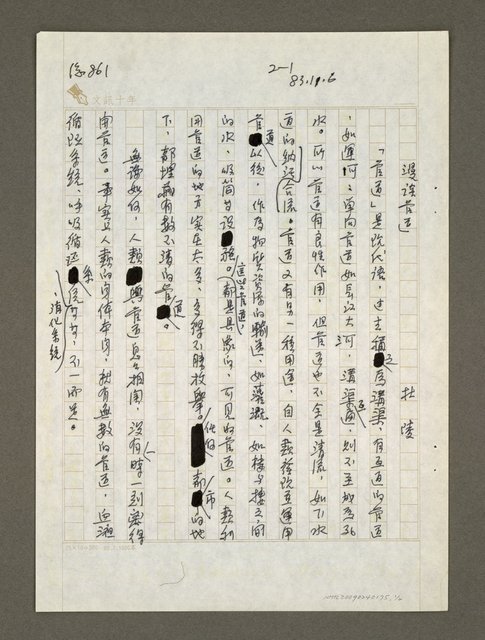 總861
2-1
83.11.6
文訊十年
漫談管道
杜陵
「管道」是現代語,過去稱之為溝渠,有互通的管道
,如運河;單向管道如長江大河,溝渠道,則不至如為
水。所以管道有良性作用,但管道也不全是清流,如下水
道的納污合流。管道又有另一種用途,自人類發現互運用
管道以後,作為物質資源的輸送,如灌溉,如樓與樓之間
的水,吸筒與設施。這些管道,都是具象的,可見的管道。人類利
用管道的地方實在太多,多得不勝枚舉。都市的地
下,都埋藏有數不清的管道。
無論如何,人類與管道息息相關,沒有一時一刻離得
開管道。事實上人類的身體本身,就有無數的管道,血液
循環系統、呼吸循環系統、消化系統等等,不一而足。
(25×12=300)
NMTL20090240175,1/2